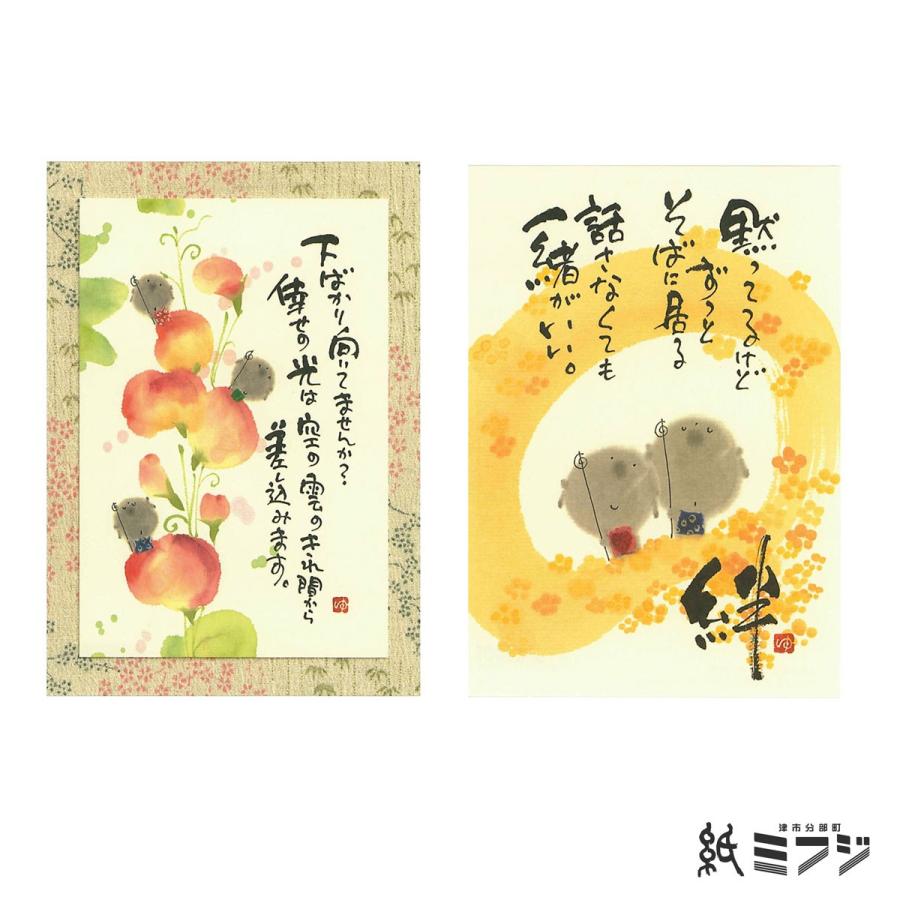 下ばかり向いてませんか?
倖せの光は空の雲のきれ間から
差し込みます。
ゆ
黙ってるけど
ずっと
そばに居る
話さなくても
一緒がいい。
絆
ゆ
津市分部町
紙ミフジ